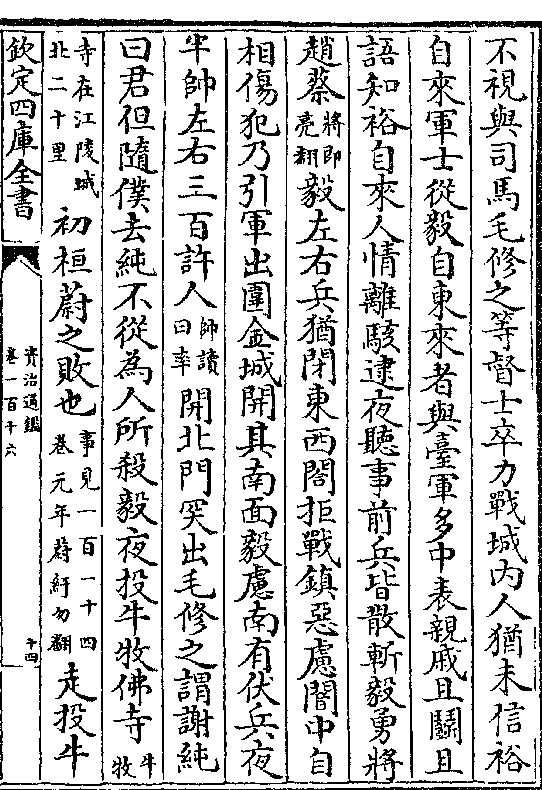 不視與司馬毛修之等督士卒力戰城內人猶未信裕
自來軍士從毅自東來者與臺軍多中表親戚且鬭且
語知裕自來人情離駭逮夜聽事前兵皆散斬毅勇將
趙蔡將即亮翻毅左右兵猶閉東西閤拒戰鎮惡慮闇中自
相傷犯乃引軍出圍金城開其南面毅慮南有伏兵夜
半帥左右三百許人帥讀曰率開北門突出毛修之謂謝純
曰君但隨僕去純不從為人所殺毅夜投牛牧佛寺牛牧
寺在江陵城北二十里初桓蔚之敗也事見一百一十四卷元年蔚紆勿翻走投牛
欽定四庫全書
資治通鑑
卷一百十六
十四